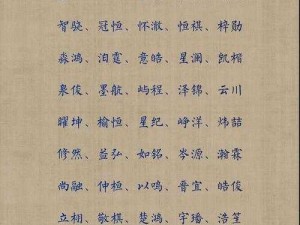 智骁、冠恒、怀澈、恒祺、梓勋
淼鸿、泊霆、意皓、星澜、凯楷
泉俊、墨航、屿程、泽锦、云川
曜坤、榆恒、星纪、峥洋、炜喆
修然、益弘、如铭、岑源、瀚霖
尚融、仲桓、以鸣、晋宜、皓俊
立栩、敬棋、楚鸿、宇璠、浩笙